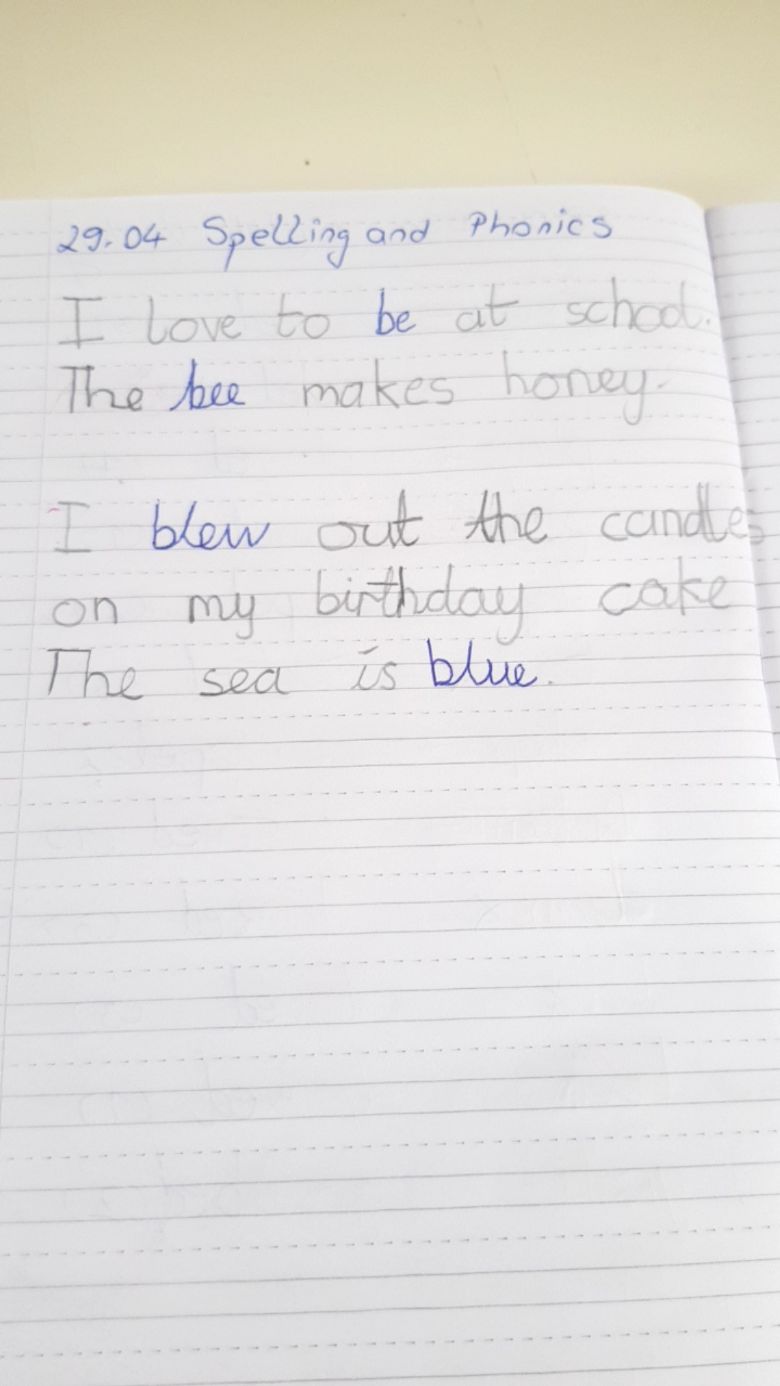 29.04 Spelling and Phonics
I love to be at school.
The bee makes honey.
I blew out the candles
on my birthday cake
The sea is blue.